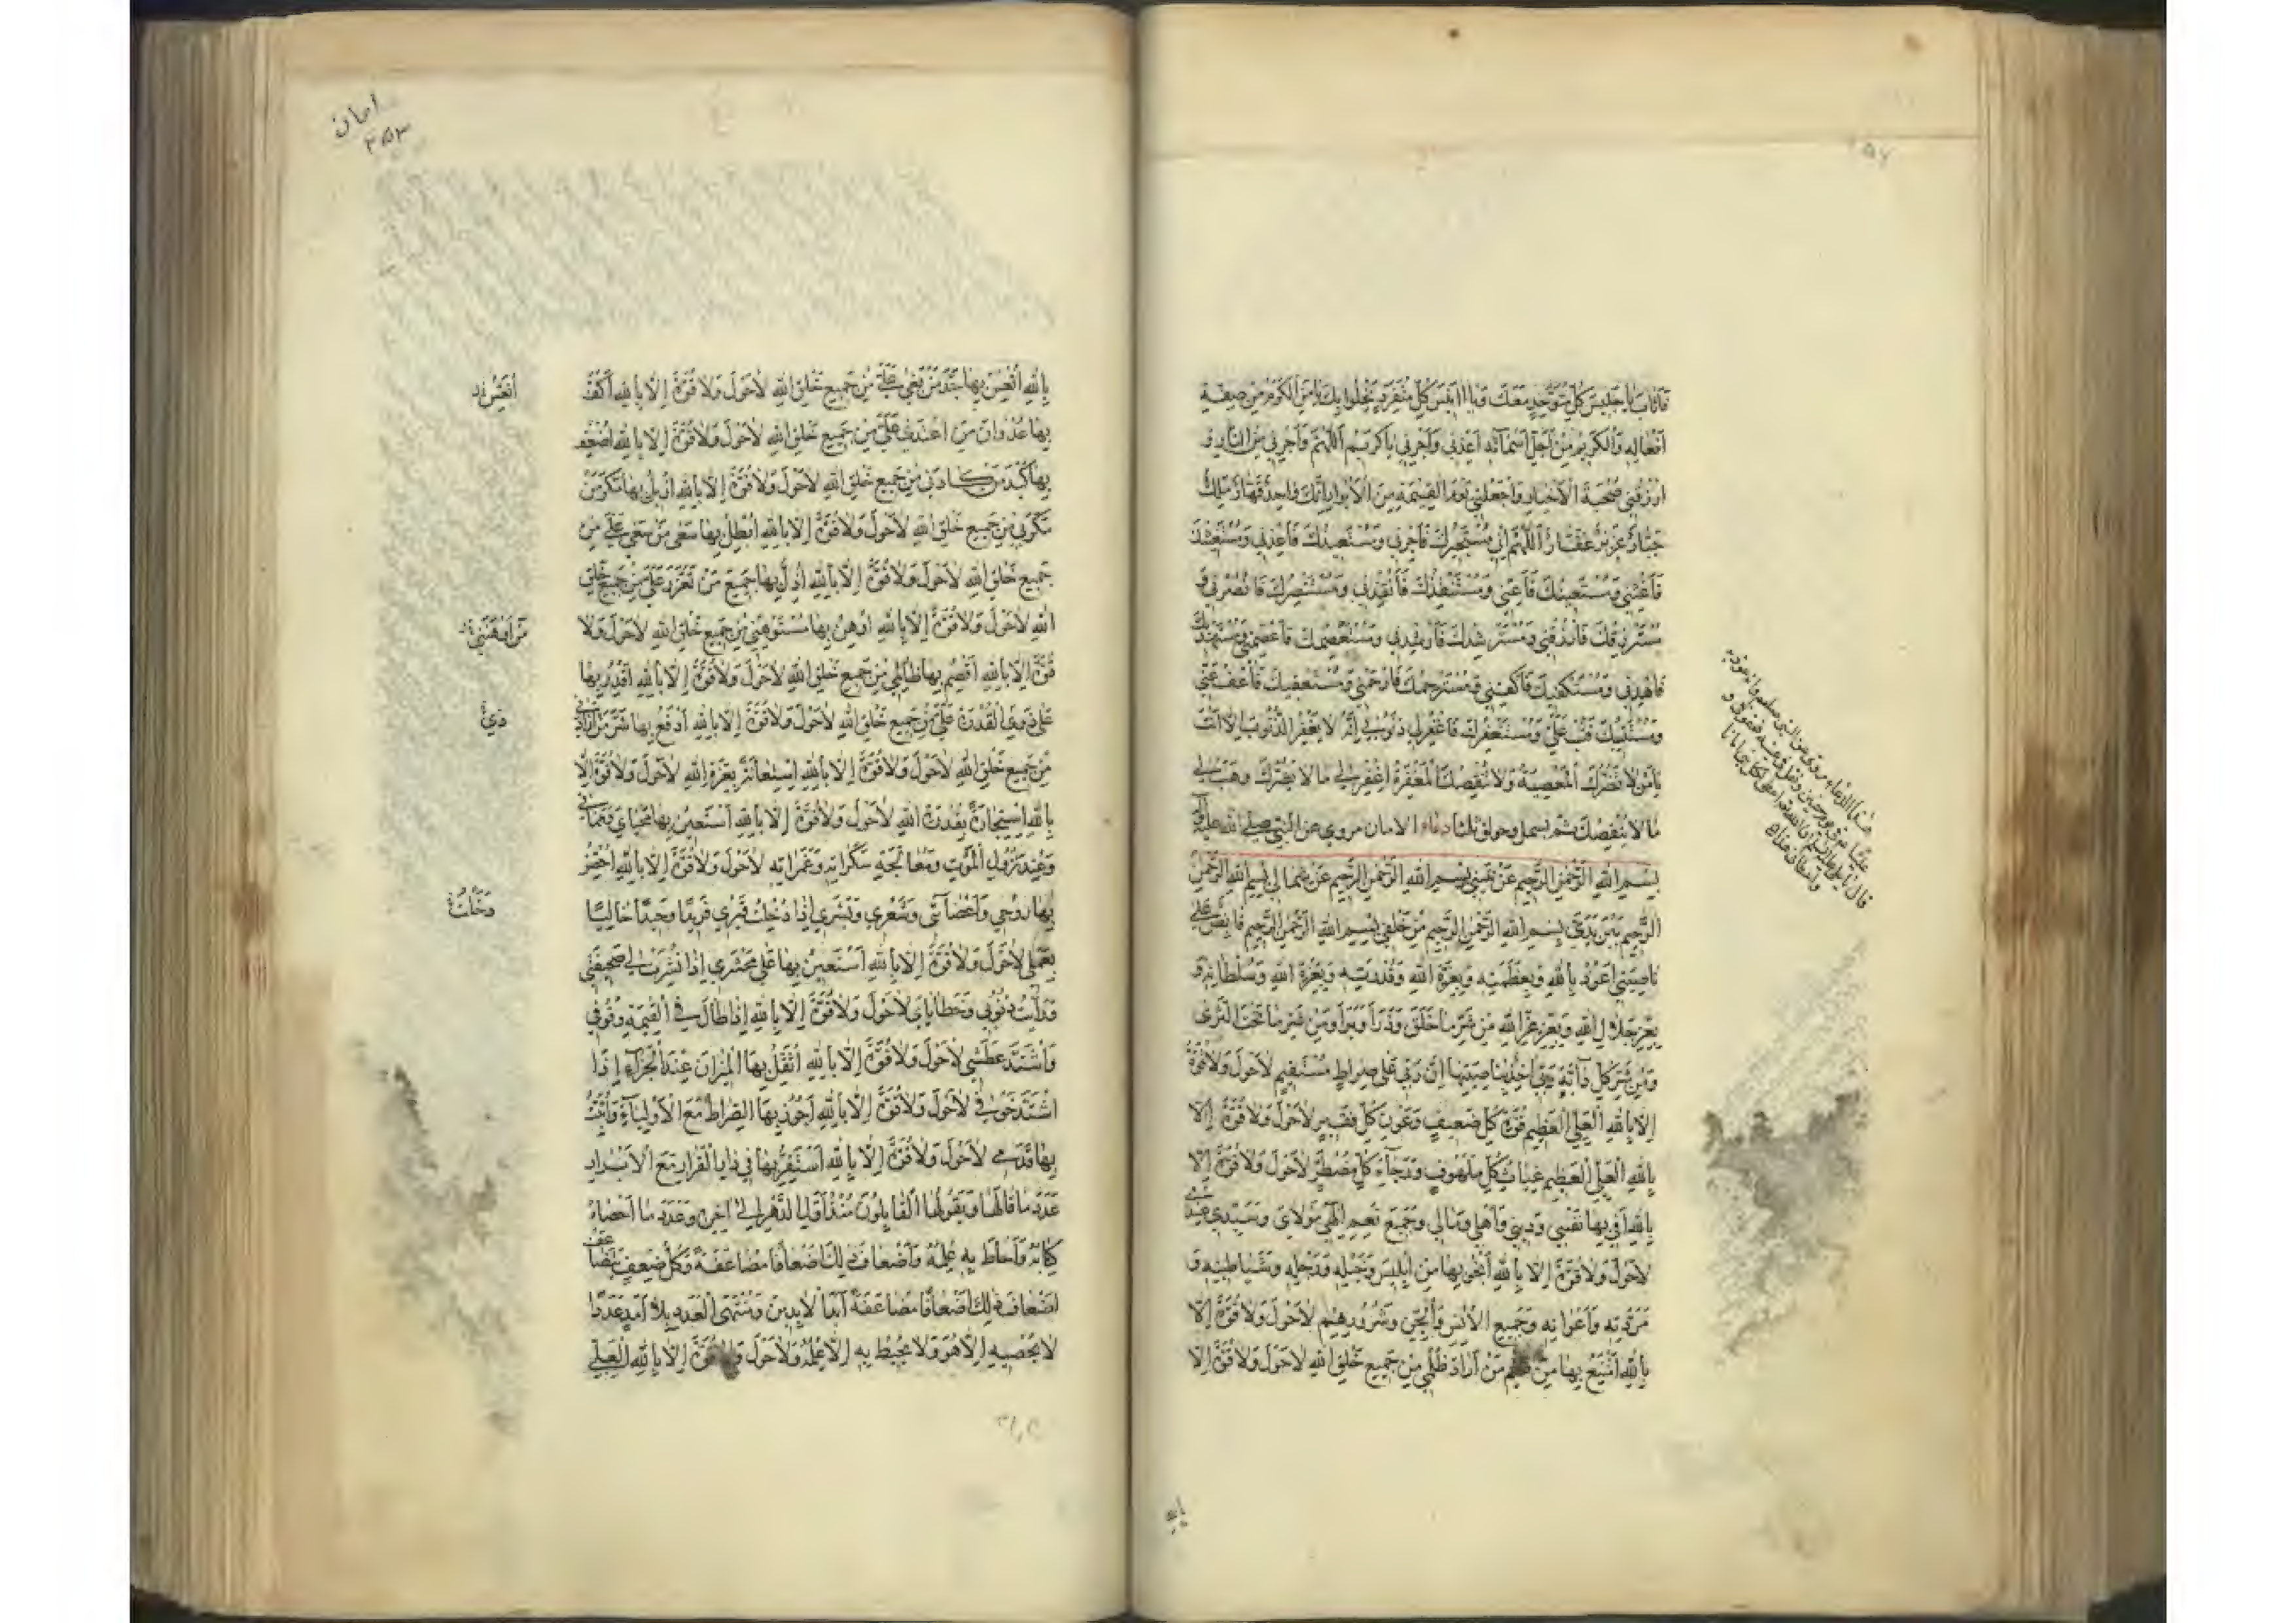 فانك يا جليس كل متوحد معك ويا انيس كل متفرد يخلوا بك يا من الكرم من صفة
افعاله والكريم من اجل اسمائه اعذني واجرني يا كريم اللهم واجرني من النار و
ارزقني صحبة الاخيار واجعلني يوم القيمة من الابرار انك واحد قهار ملك
جبار عزيز غفار اللهم اني مستجيرك فاجرني ومستعيذك فاعذني ومستغيثك
فاغثني ومستعينك فاعني ومستنقذك فانقذني ومستنصرك فانصرني و
مسترزقك فارزقني ومسترشدك فارشدني ومستعصمك فاعصمني ومستهديك
فاهدني ومستكفيك فاكفني ومسترحمك فارحمني ومستعفيك فاعف عني
ومستتيبك فتب علي ومستغفرك فاغفر لي ذنوبي انه لا يغفر الذنوب الا انت
يا من لا تضرك المعصية ولا تنقصك المغفرة اغفر لي ما لا يضرك وهب لي
ما لا ينقصك ثم بسمل وحولق ثلثا دعاء الامان مروي عن النبي صلى الله عليه
بسم الله الرحمن الرحيم عن يميني بسم الله الرحمن الرحيم عن شمالي بسم الله الرحمن
الرحيم بين يدي بسم الله الرحمن الرحيم من خلفي بسم الله الرحمن الرحيم قابض على
ناصيتي اعوذ بالله وبعظمته وبعزة الله وقدرته وبعزة الله وسلطانه و
بعز جلال الله وبعز عز الله من شر ما خلق وذرأ وبرأ ومن شر ما تحت الثرى
ومن شر كل دابة ربي اخذ بناصيتها ان ربي على صراط مستقيم لا حول ولا قوة
الا بالله العلي العظيم قوة كل ضعيف وعون كل فقير لا حول ولا قوة الا
بالله العلي العظيم غياث كل ملهوف ورجاء كل مضطر لا حول ولا قوة الا
بالله اقي بها نفسي وديني واهلي ومالي وجميع نعم الهي مولاي وسيدي عندي
لا حول ولا قوة الا بالله انجو بها من ابليس وخيله ورجله وشياطينه و
مردته واعوانه وجميع الانس والجن وشرورهم لا حول ولا قوة الا
بالله امتنع بها من ظلم من اراد ظلمي من جميع خلق الله لا حول ولا قوة الا
قال
بالله
امان
٢٥٣
بالله اتعس بها جد من بغى علي من جميع خلق الله لا حول ولا قوة الا بالله اكف
بها عدوان من اعتدى علي من جميع خلق الله لا حول ولا قوة الا بالله اضعف
بها كيد من كادني من جميع خلق الله لا حول ولا قوة الا بالله ازيل بها مكر من
مكر بي من جميع خلق الله لا حول ولا قوة الا بالله ابطل بها سعي من سعى علي من
جميع خلق الله لا حول ولا قوة الا بالله اذل بها جميع من تعزز علي من جميع خلق
الله لا حول ولا قوة الا بالله اوهن بها مستوهني من جميع خلق الله لا حول ولا
من اوهنني
قوة الا بالله اقصم بها ظالمي من جميع خلق الله لا حول ولا قوة الا بالله اقدر بها
على ذوي القدرة علي من جميع خلق الله لا حول ولا قوة الا بالله ادفع بها شر من ارادني
ذي
من جميع خلق الله لا حول ولا قوة الا بالله استعانة بعزة الله لا حول ولا قوة الا
بالله استجارة بقدرة الله لا حول ولا قوة الا بالله استعين بها محياي ومماتي
وعند نزول الموت ومعالجة سكراته وغمراته لا حول ولا قوة الا بالله
بها روحي واعضائي وشعري وبشري اذا دخلت قبري فريدا وحيدا خاليا
بعملي لا حول ولا قوة الا بالله استعين بها على محشري اذا نشرت لي صحيفتي
ورأيت ذنوبي وخطاياي لا حول ولا قوة الا بالله اذا طال في القيمة وقوفي
واشتد عطشي لا حول ولا قوة الا بالله اثقل بها الميزان عند الجزاء اذا
اشتد خوفي لا حول ولا قوة الا بالله اجوز بها الصراط مع الاولياء واثبت
بها قدمي لا حول ولا قوة الا بالله استقر بها في دار القرار مع الابرار
عدد ما قالها ويقولها القايلون منذ اول الدهر الى اخره وعدد ما احصاه
كتابه واحاط به علمه واضعاف ذلك اضعافا مضاعفة وكل ضعف يتضاعف
اضعاف ذلك اضعافا مضاعفة ابد الابدين ومنتهى العدد بلا امد عددا
لا يحصيه الا هو ولا يحيط به الا علمه ولا حول ولا قوة الا بالله العلي